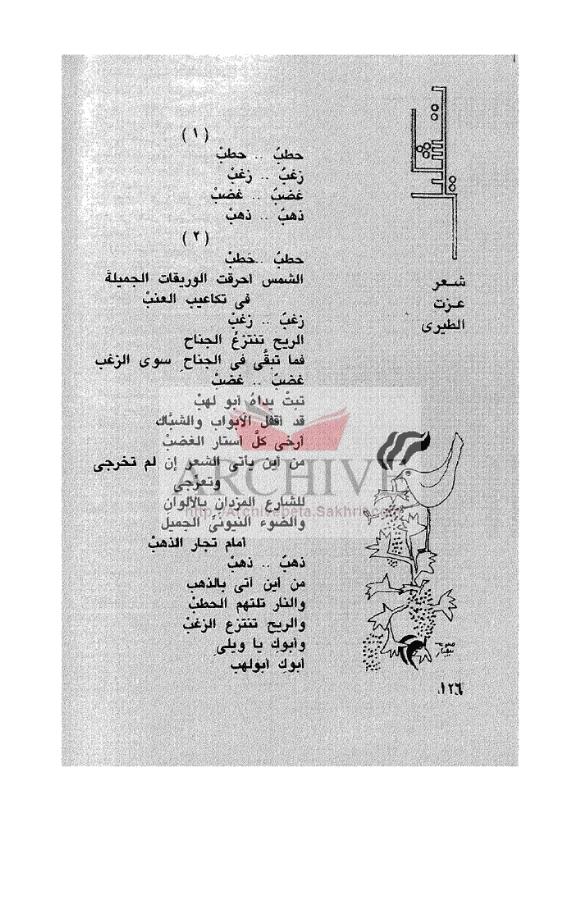 شعر
عزت
الطيرى
( ١ )
حطبٌ .. حطبْ
زغبٌ .. زغبْ
غضبٌ .. غضبْ
ذهبٌ .. ذهبْ
( ٢ )
حطبٌ .. حطبْ
الشمس احرقت الوريقات الجميلة
فى تكاعيب العنبْ
زغبٌ .. زغبْ
الريح تنتزعُ الجناح
فما تبقَّى فى الجناحِ سوى الزغب
غضبٌ .. غضبْ
تبتْ يداهُ أبو لهبْ
قد أقفل الأبواب والشبَّاك
أرخى كلَّ أستار الغضبْ
من أين يأتى الشعر إن لم تخرجى
وتعرجى
للشارع المزدان بالألوان
والضوء النيونى الجميل
امام تجار الذهبْ
ذهبٌ .. ذهبْ
من اين اتى بالذهب
والنار تلتهم الحطبْ
والريح تنتزع الزغبْ
وأبوك يا ويلى
أبوكِ أبولهب
١٢٦
ARCHIVE
http://Archivebeta.Sakhrit.com